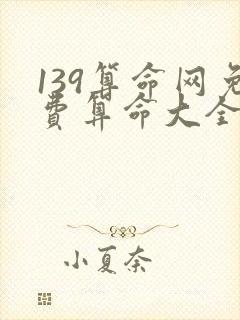 139算命网免
费算命大全
小夏奈